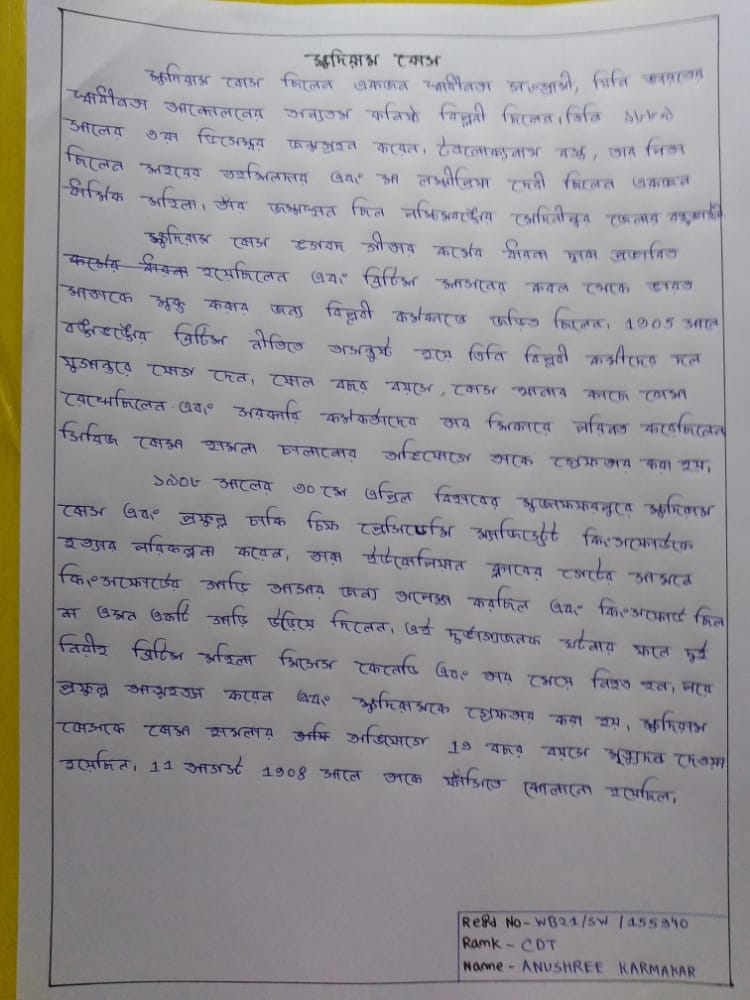 ক্ষুদিরাম বোস
ক্ষুদিরাম বোস ছিলেন একজন স্বাধীনতা সংগ্রামী, যিনি ভারতের
স্বাধীনতা আন্দোলনের অন্যতম কনিষ্ঠ বিপ্লবী ছিলেন, তিনি ১৮৮৯
সালের ৩রা ডিসেম্বর জন্মগ্রহন করেন, ত্রৈলোক্যনাথ বসু, তার পিতা
ছিলেন শহরের তহসিলদার এবং মা লক্ষীপ্রিয়া দেবী ছিলেন একজন
ধার্মিক মহিলা, তাঁর জন্মস্থান ছিল পশ্চিমবঙ্গের মেদিনীপুর জেলার
ক্ষুদিরাম বোস ভগবদ গীতার কর্মের ধারনা দ্বারা প্রভাবিত
কর্মের ধারনা হয়েছিলেন এবং ব্রিটিশ শাসনের কবল থেকে ভারত
মাতাকে মুক্ত করার জন্য বিপ্লবী কর্মকান্ডে জড়িত ছিলেন, 1905 সালে
বঙ্গভঙ্গের ব্রিটিশ নীতিতে অসন্তুষ্ট হয়ে তিনি বিপ্লবী কর্মীদের দল
যুগান্তরে যোগ দেন, ষোল বছর বয়সে, বোস থানার কাছে বোমা
রেখেছিলেন এবং সরকারি কর্মকর্তাদের তার শিকারে পরিনত করেছিলেন
সিরিজ বোমা হামলা চালানোর অভিযোগে তাকে গ্রেফতার করা হয়,
১৯০৮ সালের ৩০ শে এপ্রিল বিহারের মুজাফফরপুরে ক্ষুদিরাম
বোস এবং প্রফুল্ল চাকি চিফ প্রেসিডেন্সি ম্যাজিস্ট্রেট কিংসফোর্ডকে
হত্যার পরিকল্পনা করেন, তারা ইউরোপিয়ান ক্লাবের গেটের সামনে
কিংসফোর্ডের গাড়ি আসার জন্য অপেক্ষা করছিল এবং কিংসফোর্ড ছিল
না এমন একটি গাড়ি উড়িয়ে দিলেন, এই দুর্ভাগ্যজনক ঘটনার ফলে দুই
নিরীহ ব্রিটিশ মহিলা মিসেস কেনেডি এবং তার মেয়ে নিহত হন, পরে
প্রফুল্ল আত্মহত্যা করেন এবং ক্ষুদিরামকে গ্রেফতার করা হয়, ক্ষুদিরাম
বোসকে বোমা হামলার অভিযোগে 19 বছর বয়সে মৃত্যুদন্ড দেওয়া
হয়েছিল, 11 আগস্ট 1908 সালে তাকে ফাঁসিতে ঝোলানো হয়েছিল,
Regd No- WB21/SW /155940
Rank - CDT
Name - ANUSHREE KARMAKAR